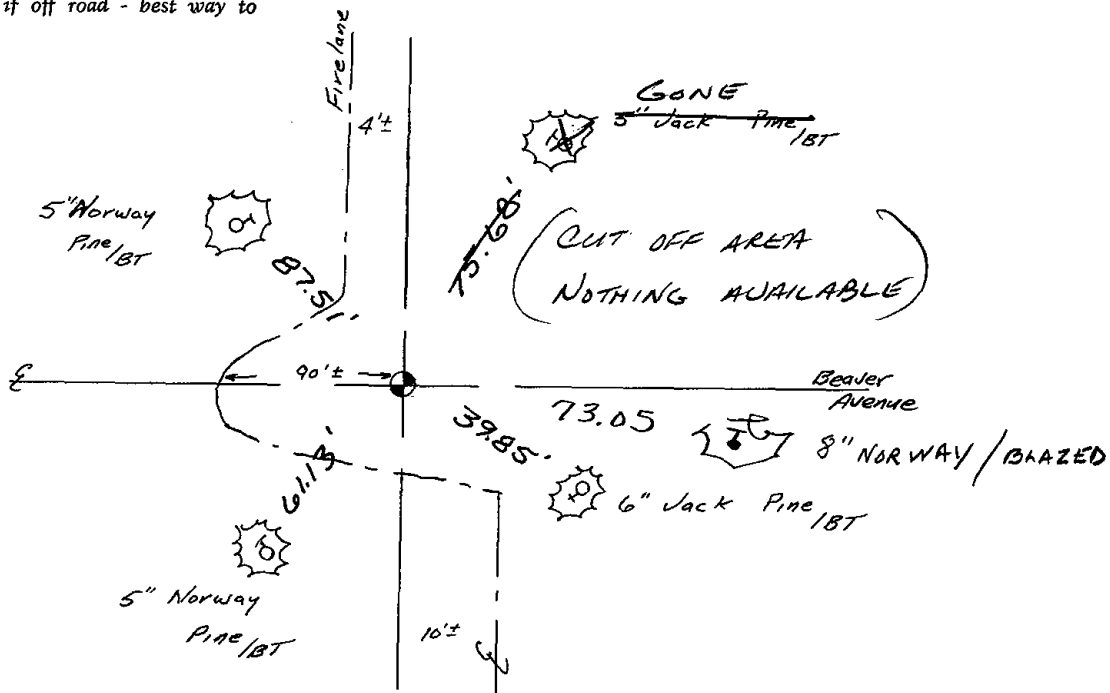 if off road - best way to
Firelane
4'±
GONE
5" Jack Pine /BT
5" Norway
Pine/BT
75.68'
(CUT OFF AREA
NOTHING AVAILABLE)
87.51'
90'±
Beaver
Avenue
39.85'
73.05
8" NORWAY / BLAZED
61.13'
6" Jack Pine /BT
5" Norway
Pine/BT
10'±